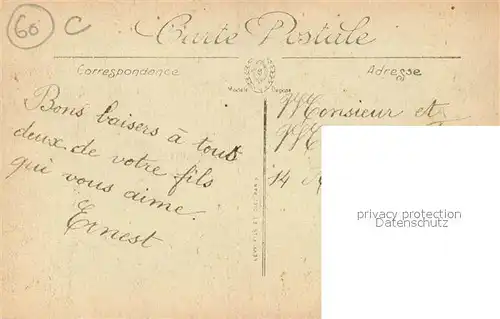 60 C
Carte Postale
Correspondance
Adresse
Modèle Déposé
Bons baisers à tout
deux de votre fils
qui vous aime.
Ernest
Monsieur et
14
privacy protection
Datenschutz